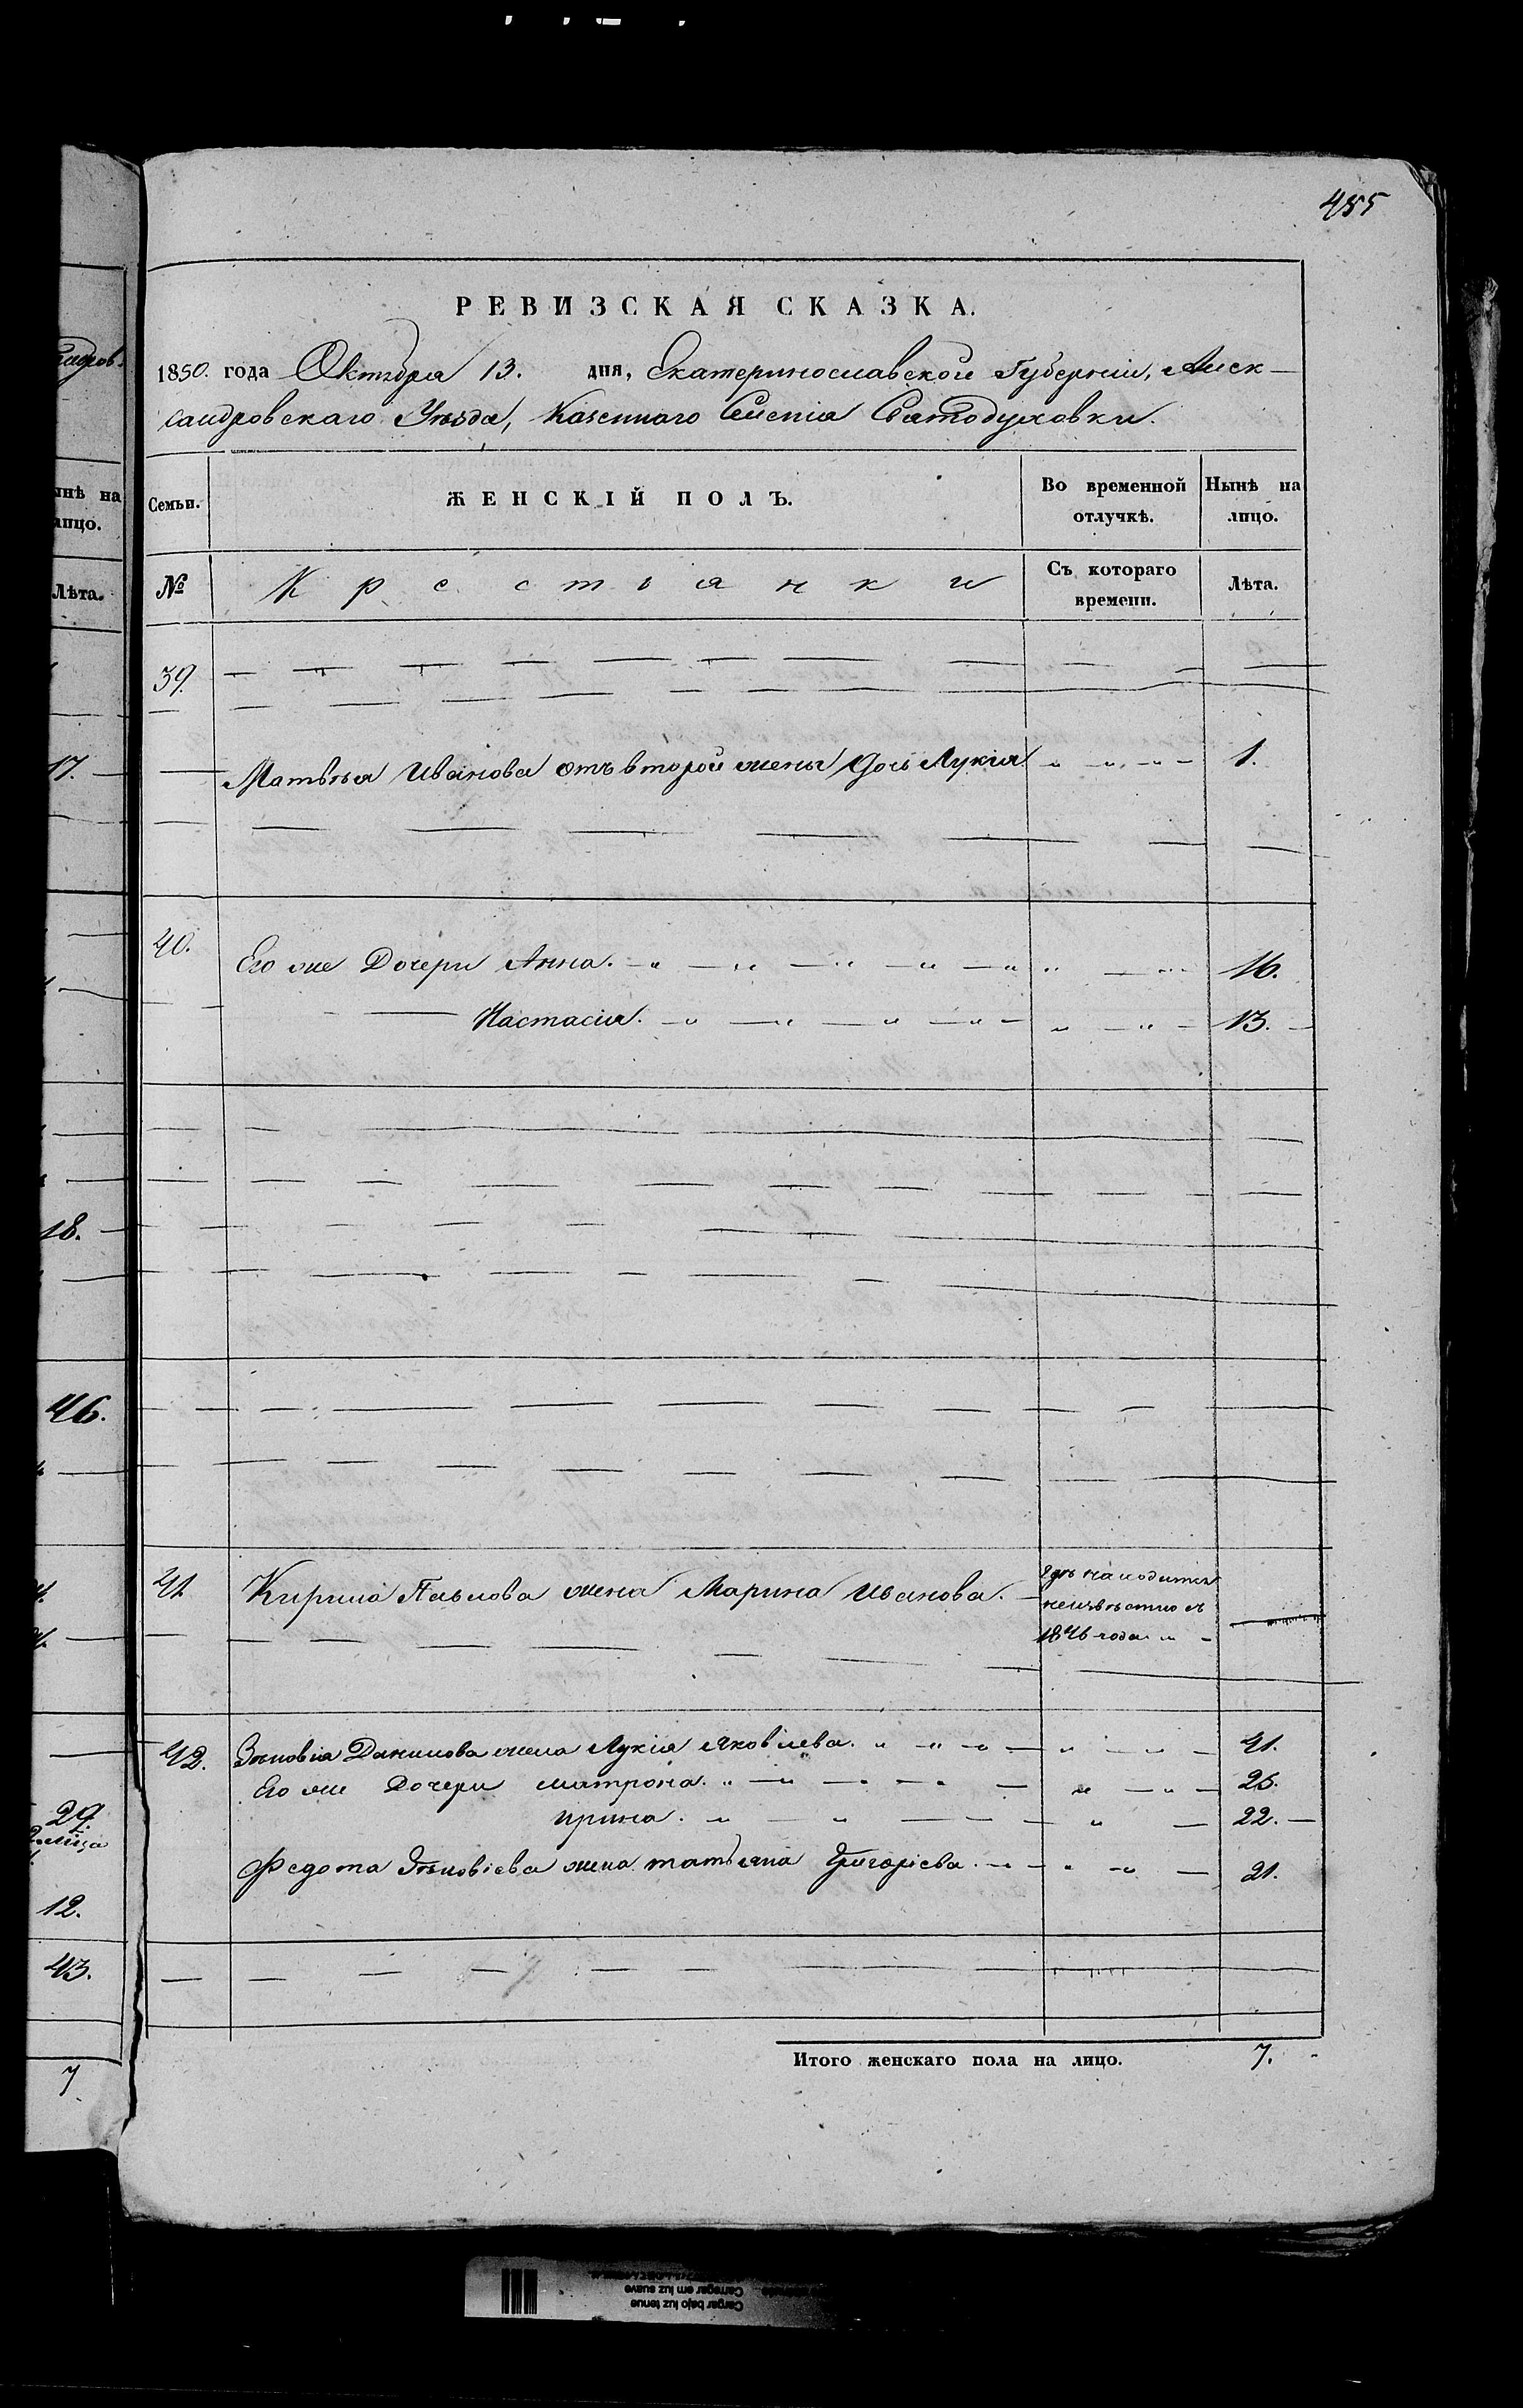 485
РЕВИЗСКАЯ СКАЗКА.
1850. года Октября 13. дня, Екатеринославской Губерніи, Алек-
сандровскаго Уѣзда, Казеннаго Селенія Святодуховки.
Семьи.
ЖЕНСКІЙ ПОЛЪ.
Во временной отлучкѣ.
Нынѣ на лицо.
№
Крестьянки
Съ котораго времени.
Лѣта.
39.
Матвѣя Иванова отъ второй жены дочь Лукія 1.
40.
Его же Дочери Анна. 16.
Настасія. 13.
41.
Кирила Павлова жена Марина Иванова.
гдѣ находится
неизвѣстно съ
1846 года
42. Зѣновія Данилова жена Лукія Яковлева. 41.
Его же Дочери Матрона. 25.
Ирина. 22.
Федота Зѣновіева жена Татьяна Григорьева. 21.
Итого женскаго пола на лицо. 7.
нынѣ на
лицо.
Лѣта.
17.
18.
46.
29.
12.
43.
7
Cargar bajo luz tenue
Carregar em luz suave